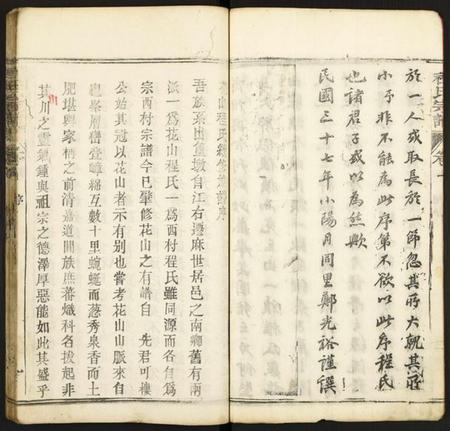 於一人或取長於一節忽其所大覬其所
小予非不能為此序第不欲以此序程氏
也諸君子或以為然歟
民國三十七年小陽月同里鄭光裕謹撰
程氏宗譜 卷一
花山程氏續修宗譜序
吾族系出篁墩自江右遷麻世居邑之南鄉舊有兩
派一為花山程氏一為西村程氏雖同源而各自為
宗西村宗譜今已肇修花山之有譜自 先君可樓
公始其冠以花山者示有別也嘗考花山山脈來自
層巒疊嶂綿互數十里蜿蜒而蔥秀泉香而土
肥堪輿家稱之前清嘉道間族庶蕃熾科名拔起非
其川之靈氣鍾與祖宗之德澤厚惡能如此其盛乎